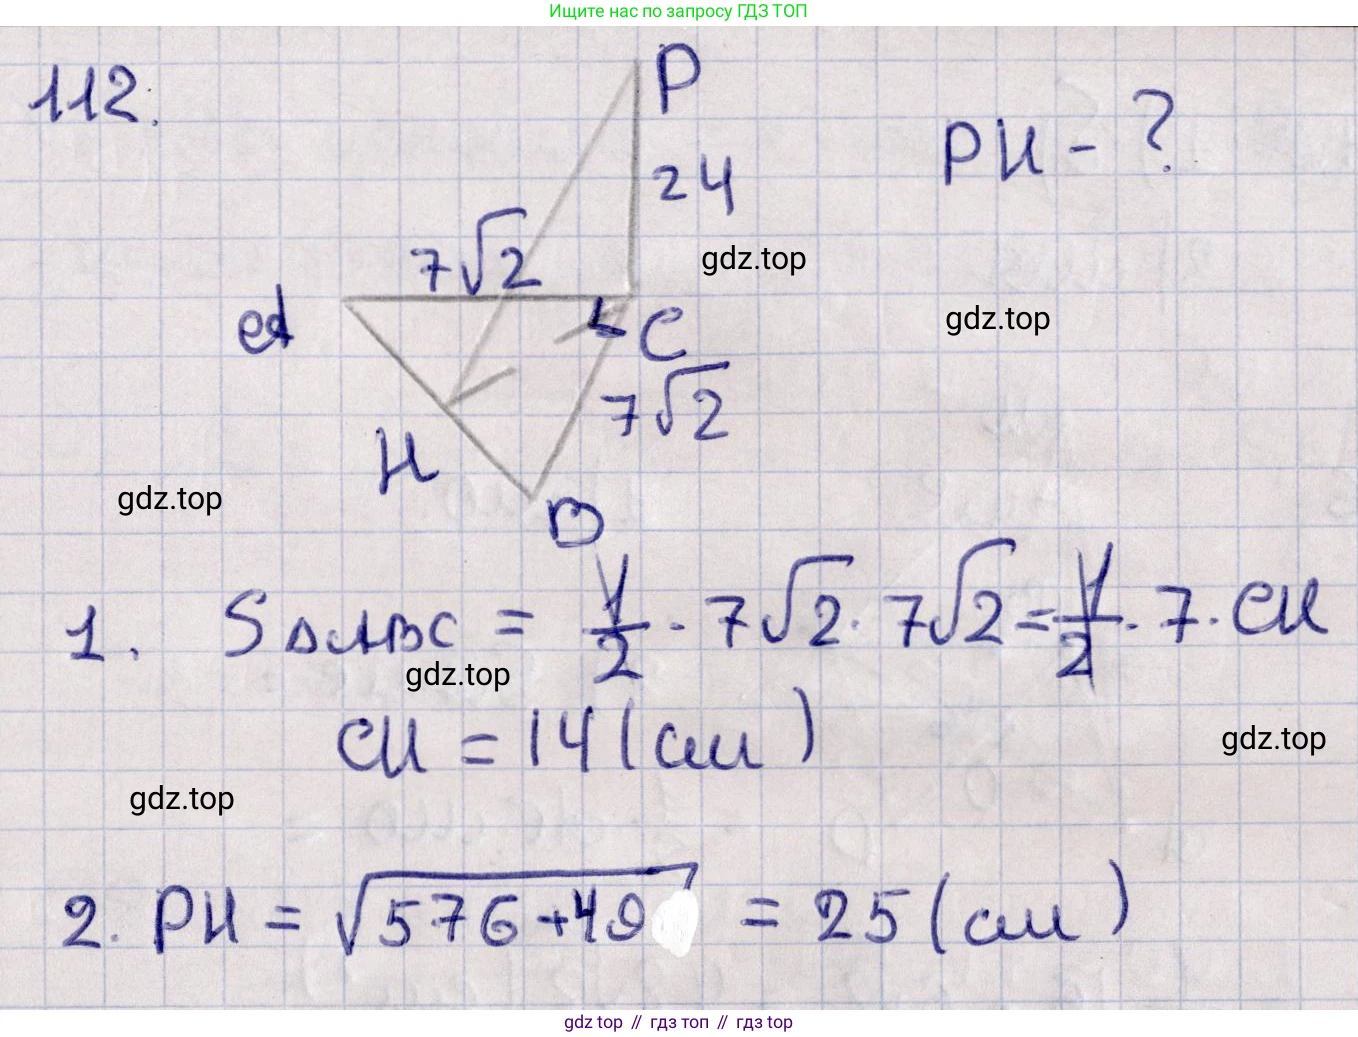 Ищите нас по запросу ГДЗ ТОП
112.
P
PH - ?
24
7√2
gdz.top
A
C
gdz.top
7√2
H
gdz.top
B
1. S△ABC = 1/2 · 7√2 · 7√2 = 1/2 · 7 · CH
gdz.top
CH = 14 (см)
gdz.top
gdz.top
2. PH = √576+49 = 25 (см)
gdz top // гдз топ // гдз top